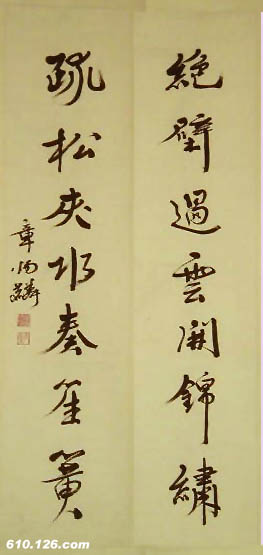 絶壁過雲開錦繡
疏松夾水奏笙簧
章炳麟
610.126.com